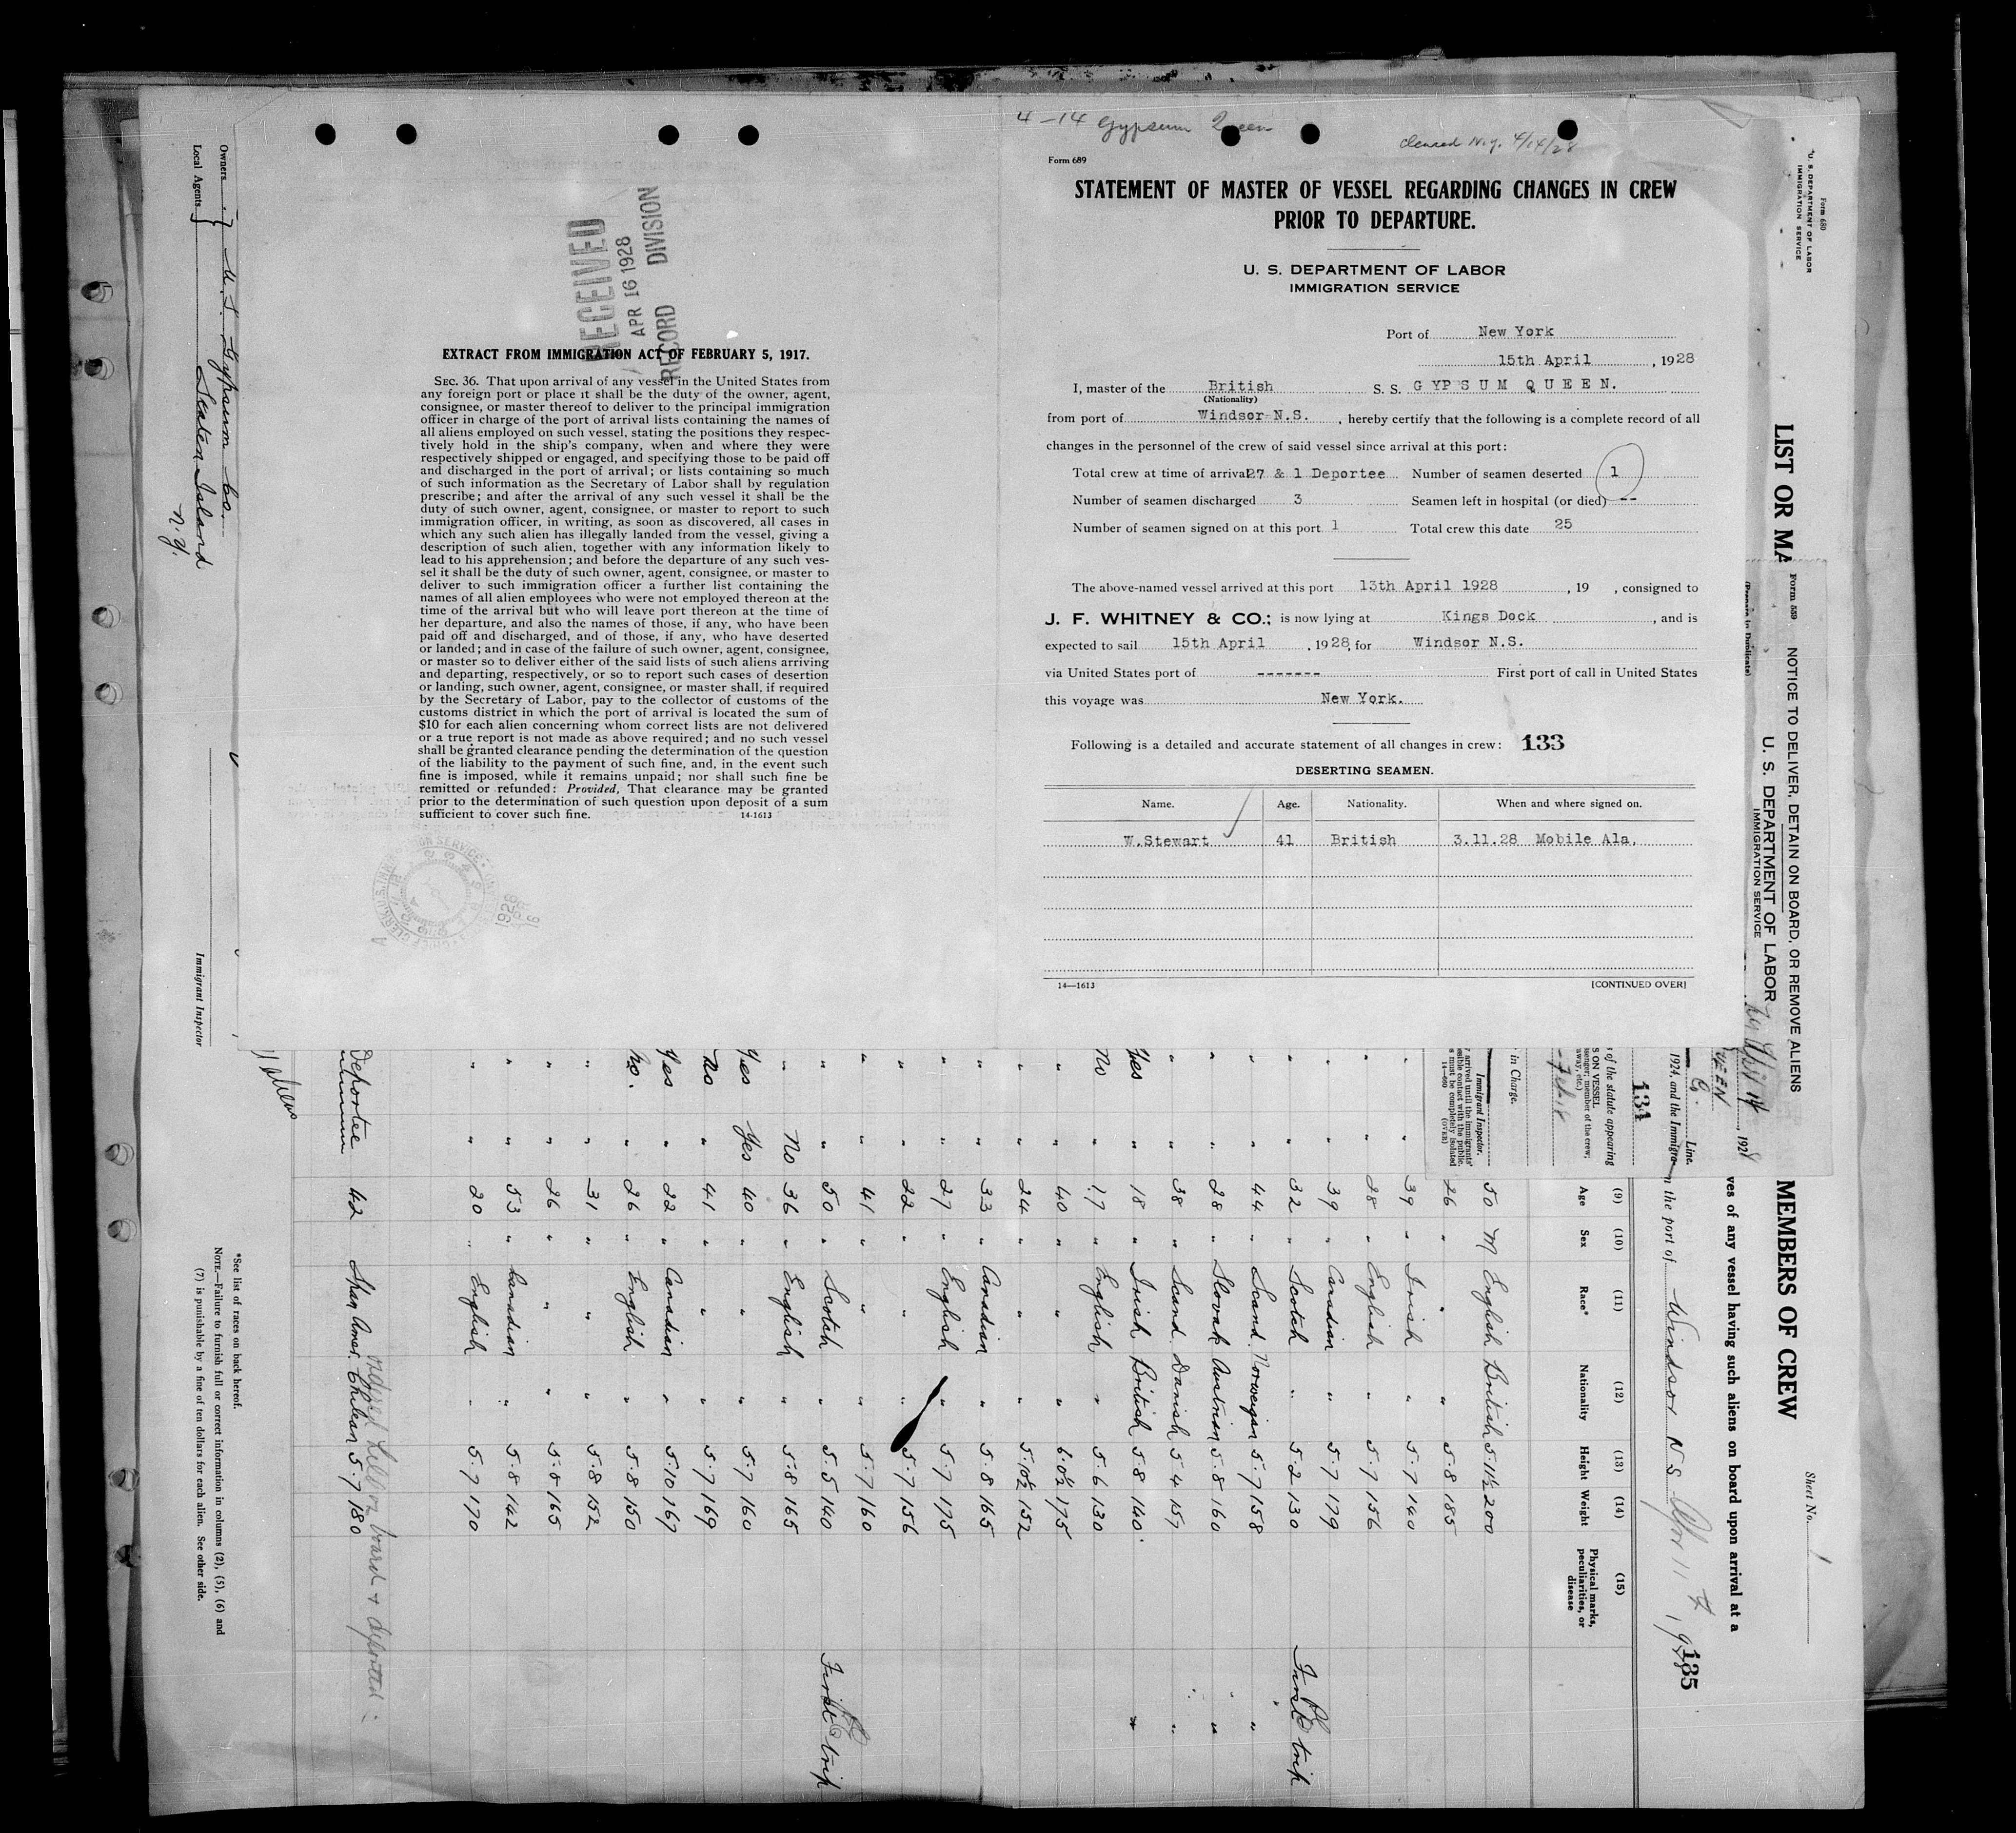 4-14 Gypsum Queen
cleared N.Y. 4/14/28
Form 689
STATEMENT OF MASTER OF VESSEL REGARDING CHANGES IN CREW
PRIOR TO DEPARTURE.
U. S. DEPARTMENT OF LABOR
IMMIGRATION SERVICE
Port of New York
15th April, 1928
I, master of the British S. S. GYPSUM QUEEN.
(Nationality)
from port of Windsor N.S., hereby certify that the following is a complete record of all
changes in the personnel of the crew of said vessel since arrival at this port:
Total crew at time of arrival 27 & 1 Deportee Number of seamen deserted 1
Number of seamen discharged 3 Seamen left in hospital (or died) --
Number of seamen signed on at this port 1 Total crew this date 25
The above-named vessel arrived at this port 13th April 1928, 19 , consigned to
J. F. WHITNEY & CO.; is now lying at Kings Dock, and is
expected to sail 15th April, 1928, for Windsor N.S.
via United States port of ------- First port of call in United States
this voyage was New York.
Following is a detailed and accurate statement of all changes in crew: 133
DESERTING SEAMEN.
Name. Age. Nationality. When and where signed on.
W.Stewart 41 British 3.11.28 Mobile Ala.
14—1613 [CONTINUED OVER]
RECEIVED
APR 16 1928
RECORD DIVISION
EXTRACT FROM IMMIGRATION ACT OF FEBRUARY 5, 1917.
SEC. 36. That upon arrival of any vessel in the United States from
any foreign port or place it shall be the duty of the owner, agent,
consignee, or master thereof to deliver to the principal immigration
officer in charge of the port of arrival lists containing the names of
all aliens employed on such vessel, stating the positions they respec-
tively hold in the ship's company, when and where they were
respectively shipped or engaged, and specifying those to be paid off
and discharged in the port of arrival; or lists containing so much
of such information as the Secretary of Labor shall by regulation
prescribe; and after the arrival of any such vessel it shall be the
duty of such owner, agent, consignee, or master to report to such
immigration officer, in writing, as soon as discovered, all cases in
which any such alien has illegally landed from the vessel, giving a
description of such alien, together with any information likely to
lead to his apprehension; and before the departure of any such ves-
sel it shall be the duty of such owner, agent, consignee, or master to
deliver to such immigration officer a further list containing the
names of all alien employees who were not employed thereon at the
time of the arrival but who will leave port thereon at the time of
her departure, and also the names of those, if any, who have been
paid off and discharged, and of those, if any, who have deserted
or landed; and in case of the failure of such owner, agent, consignee,
or master so to deliver either of the said lists of such aliens arriving
and departing, respectively, or so to report such cases of desertion
or landing, such owner, agent, consignee, or master shall, if required
by the Secretary of Labor, pay to the collector of customs of the
customs district in which the port of arrival is located the sum of
$10 for each alien concerning whom correct lists are not delivered
or a true report is not made as above required; and no such vessel
shall be granted clearance pending the determination of the question
of the liability to the payment of such fine, and, in the event such
fine is imposed, while it remains unpaid; nor shall such fine be
remitted or refunded: Provided, That clearance may be granted
prior to the determination of such question upon deposit of a sum
sufficient to cover such fine. 14-1613
Form 680
U. S. DEPARTMENT OF LABOR
IMMIGRATION SERVICE
LIST OR MA
MEMBERS OF CREW
Sheet No. 1
ves of any vessel having such aliens on board upon arrival at a
n the port of Windsor N S Apr 11th, 19
135
Form 539
NOTICE TO DELIVER, DETAIN ON BOARD, OR REMOVE ALIENS
U. S. DEPARTMENT OF LABOR
IMMIGRATION SERVICE
(Prepare in Duplicate)
, 1928
Line.
1924, and the Immigra
134
of the statute appearing
S ON VESSEL
senger; member of the crew;
away, etc.)
in Charge.
Immigrant Inspector.
arrived until the immigrants'
ssible contact with the public.
s must be completely isolated
14—660 (OVER)
(9) (10) (11) (12) (13) (14) (15)
Age Sex Race* Nationality Height Weight Physical marks, peculiarities, or disease
50 M English British 5.11½ 200
26 " " " 5.8 185
" " 39 " Irish " 5.7 140
" " 28 " English " 5.7 156
" " 39 " Canadian " 5.7 179
" " 32 " Scotch " 5.2 130 First trip
" " 44 " Scand. Norweigan 5.7 158 "
" " 28 " Slovak Austrian 5.8 160 "
" " 38 " Scand. Danish 5.4 157 "
Yes " 18 " Irish British 5.8 140 "
No " 17 " English " 5.6 130
" " 40 " " " 6.0½ 175
" " 24 " " " 5.10½ 152
" " 33 " Canadian " 5.8 165
" " 27 " English " 5.7 175
" " 22 " " " 5.7 156
" " 41 " " " 5.7 160
" " 50 " Scotch " 5.5 140 First trip
" No 36 " English " 5.8 165
Yes Yes 40 " " " 5.7 160
No " 41 " " " 5.7 169
Yes " 22 " Canadian " 5.10 167
No. " 26 " English " 5.8 150
" " 31 " " " 5.8 152
" " 26 " " " 5.8 165
" " 53 " Canadian " 5.8 142
" " 20 " English " 5.7 170
board & deported
Deportee 42 Span Amer. Chilean 5.7 180
aliens
*See list of races on back hereof.
NOTE.—Failure to furnish full or correct information in columns (2), (5), (6) and
(7) is punishable by a fine of ten dollars for each alien. See other side.
Owners
Local Agents
U.S. Gypsum Co.
Staten Island
N.Y.
Immigrant Inspector